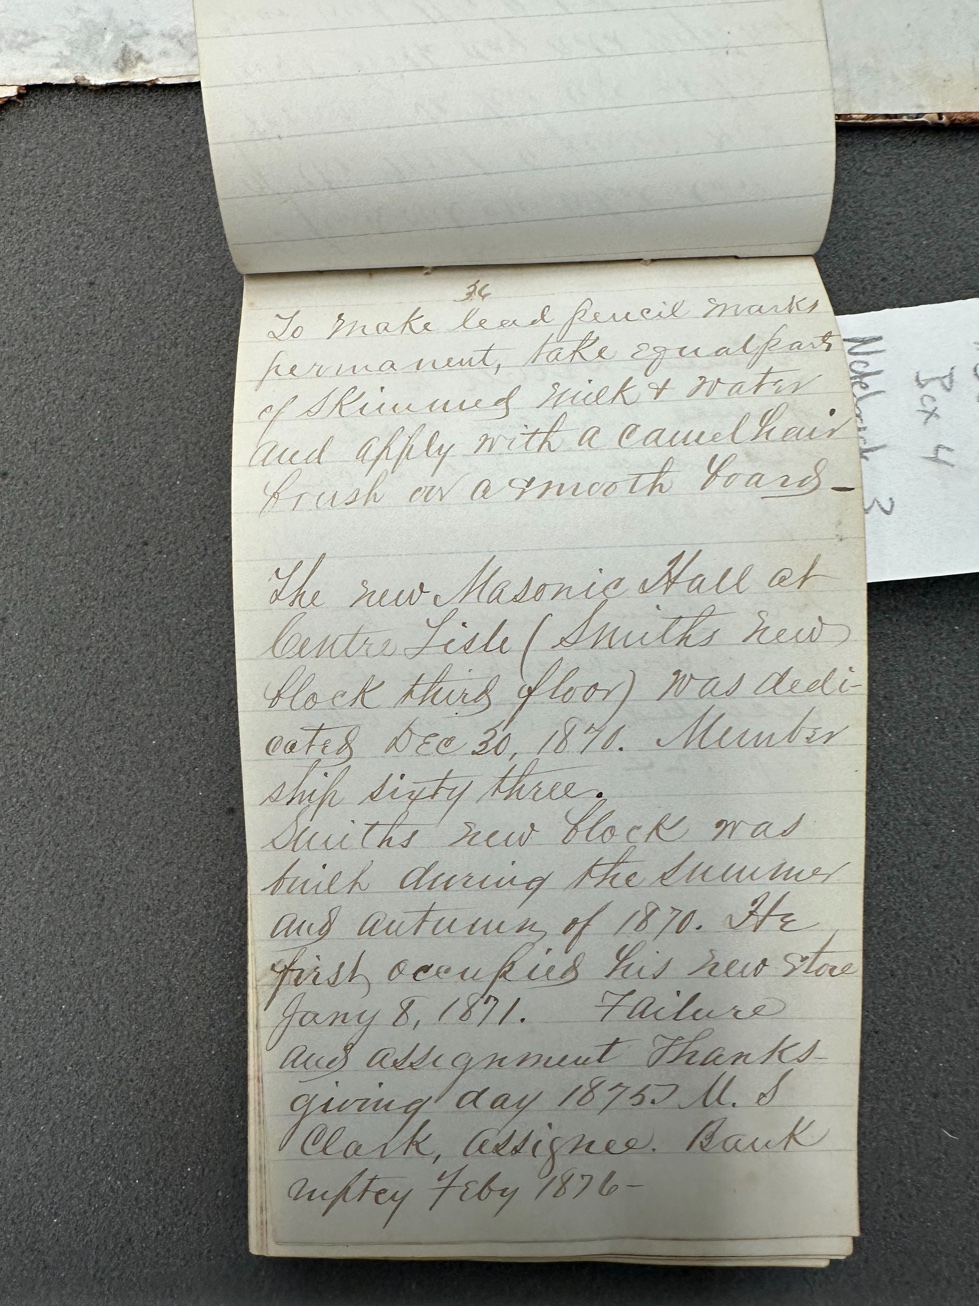 36
To make lead pencil marks
permanent, take equal parts
of skimmed milk & water
and apply with a camel hair
brush on a smooth board –
The new Masonic Hall at
Centre Lisle (Smiths new
block third floor) was dedi-
cated Dec 30, 1870. Member
ship sixty three.
Smiths new block was
built during the summer
and autumn of 1870. He
first occupied his new store
Jany 8, 1871. Failure
and assignment Thanks-
giving day 1875 M. S
Clark, assignee. Bank
ruptcy Feby 1876 –
Box 4
Notebook 3